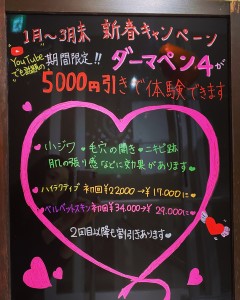 1月〜3月末 新春キャンペーン
YouTube
でも話題の
期間限定!! ダーマペン4が
5000円引きで体験できます
小ジワ・毛穴の開き・ニキビ跡
肌の張り感などに効果があります♥
♥ハイラアクティブ 初回¥22000→¥17.000に♥
♥ベルベットスキン 初回¥34,000→¥29,000に♥
2回目以降も割引きあります♥